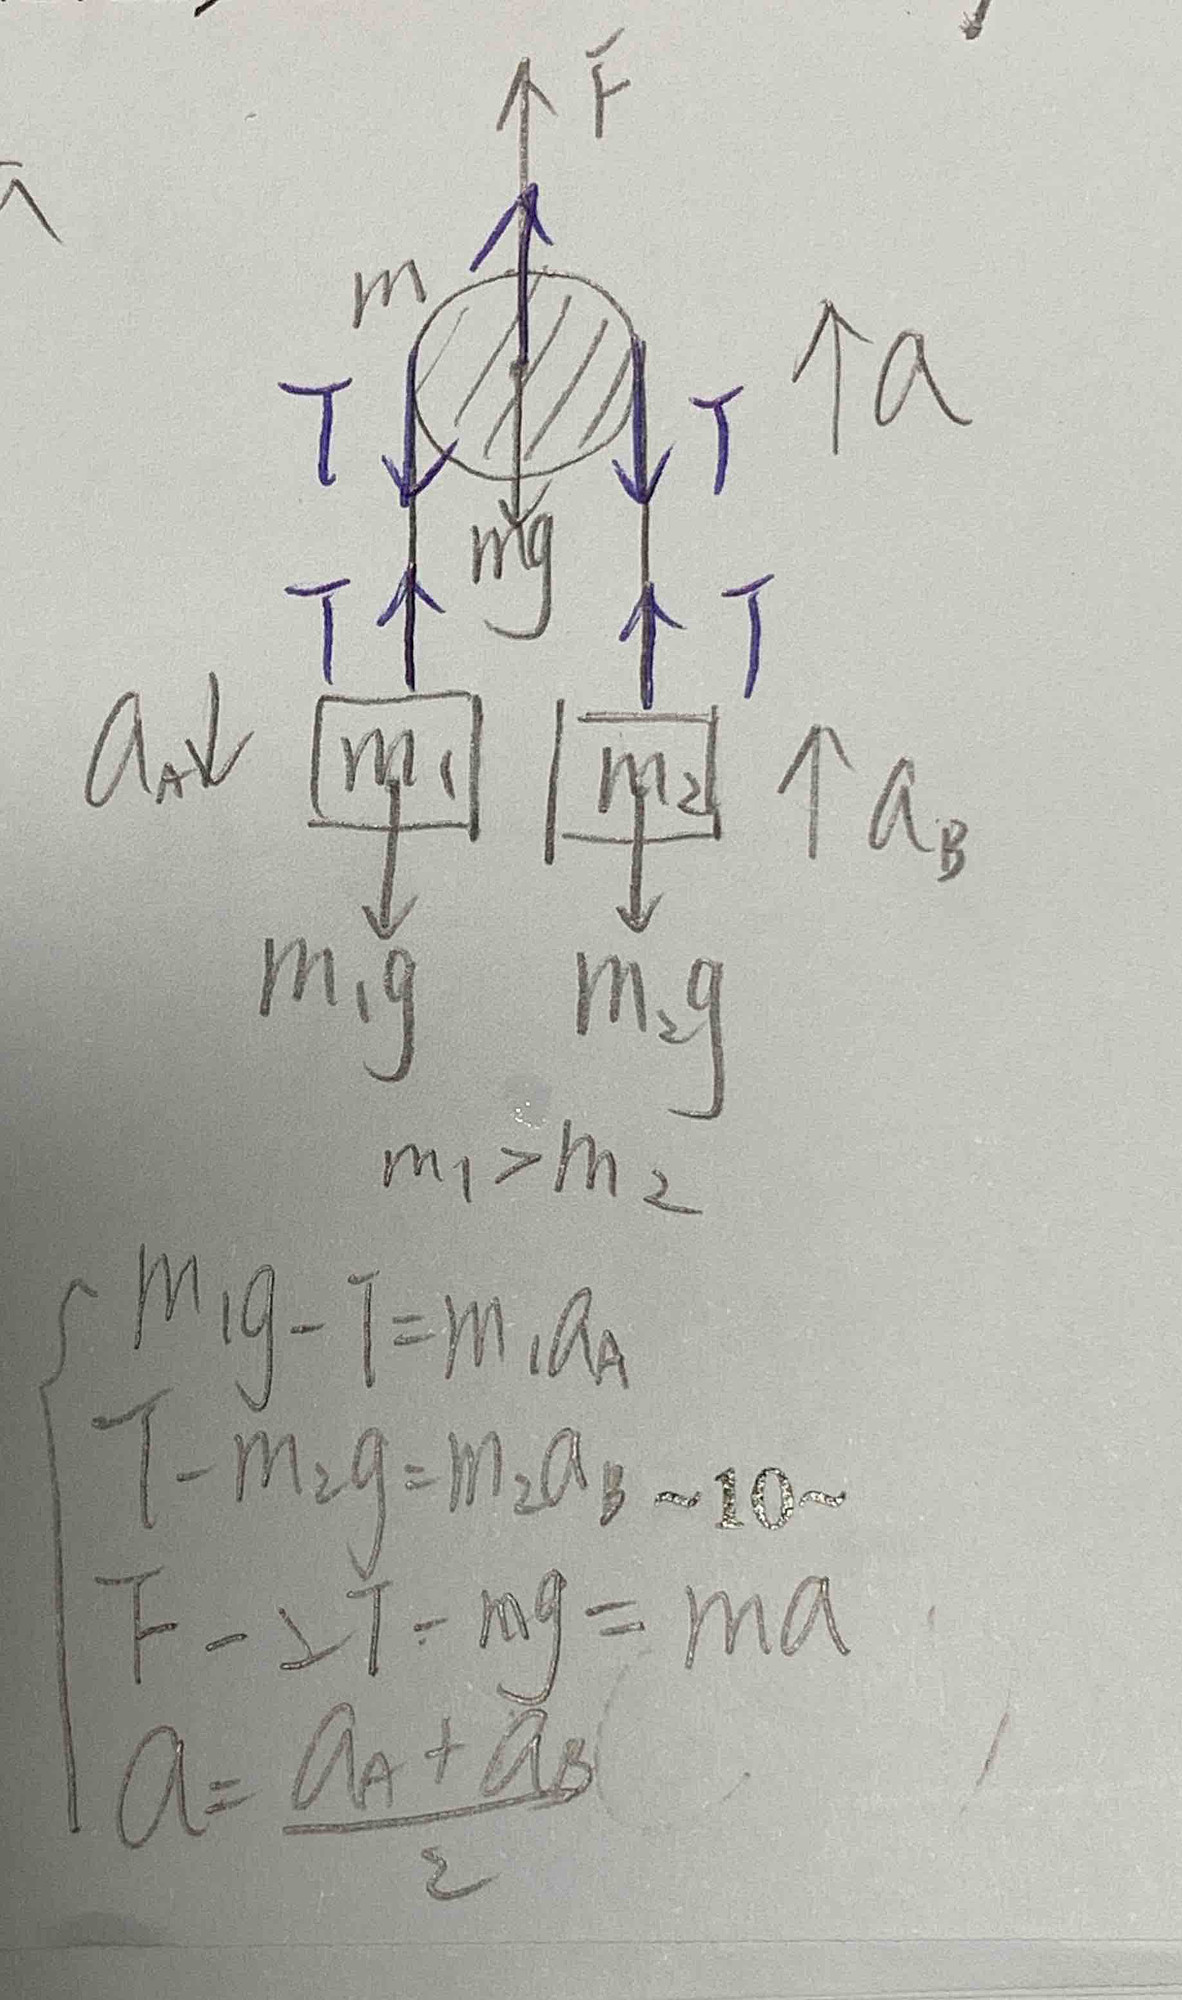 F
m
T T ↑a
mg
T T
a_A↓ m₁ m₂ ↑a_B
m₁g m₂g
m₁>m₂
m₁g-T=m₁a_A
T-m₂g=m₂a_B ~10~
F-2T-mg=ma
a=(a_A+a_B)/2